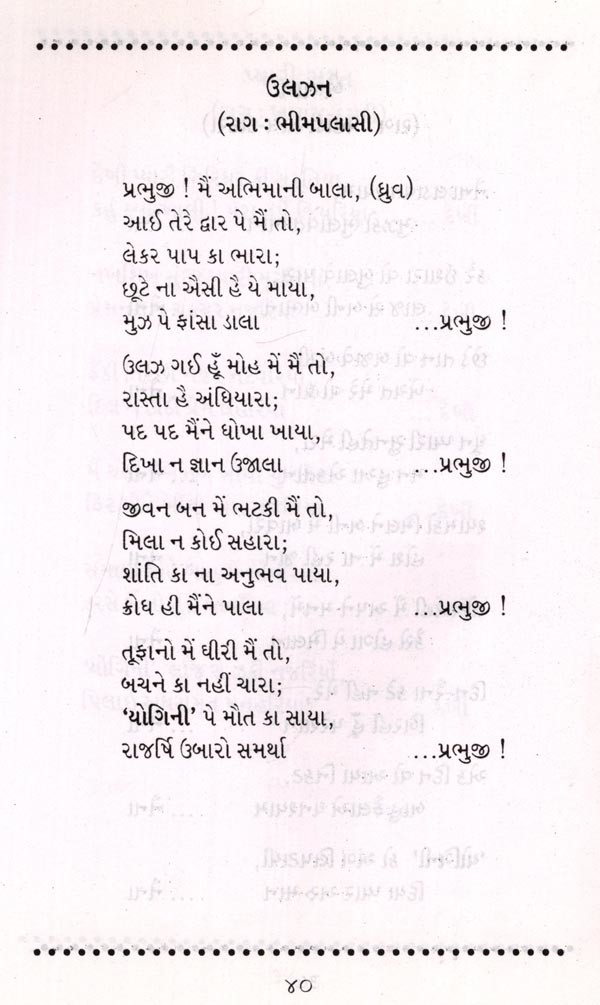 ઉલઝન
(રાગ : ભીમપલાસી)
પ્રભુજી ! મૈં અભિમાની બાલા, (ધ્રુવ)
આઈ તેરે દ્વાર પે મૈં તો,
લેકર પાપ કા ભારા;
છૂટે ના ઐસી હૈ યે માયા,
મુઝ પે ફાંસા ડાલા ...પ્રભુજી !
ઉલઝ ગઈ હૂઁ મોહ મેં મૈં તો,
રાસ્તા હૈ અંધિયારા;
પદ પદ મૈંને ધોખા ખાયા,
દિખા ન જ્ઞાન ઉજાલા ...પ્રભુજી !
જીવન બન મેં ભટકી મૈં તો,
મિલા ન કોઈ સહારા;
શાંતિ કા ના અનુભવ પાયા,
ક્રોધ હી મૈંને પાલા ...પ્રભુજી !
તૂફાનો મેં ઘીરી મૈં તો,
બચને કા નહીં ચારા;
‘યોગિની’ પે મૌત કા સાયા,
રાજર્ષિ ઉબારો સમર્થા ...પ્રભુજી !
૪૦